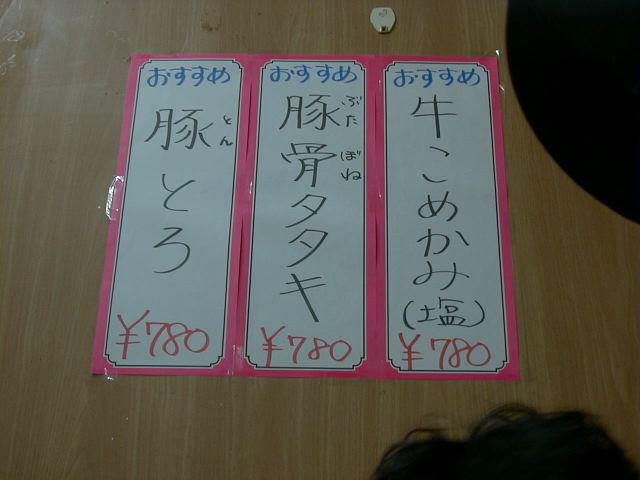 おすすめ
牛こめかみ(塩)
¥780
おすすめ
豚骨タタキ
ぶたぼね
¥780
おすすめ
豚とろ
とん
¥780